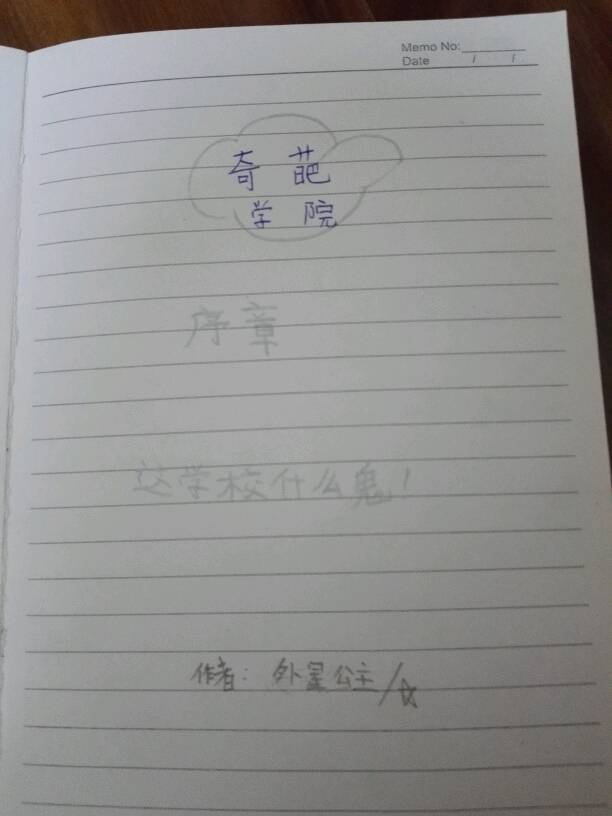 Memo No:
Date / /
奇葩
学院
序章
这学校什么鬼!
作者: 外星公主/☆